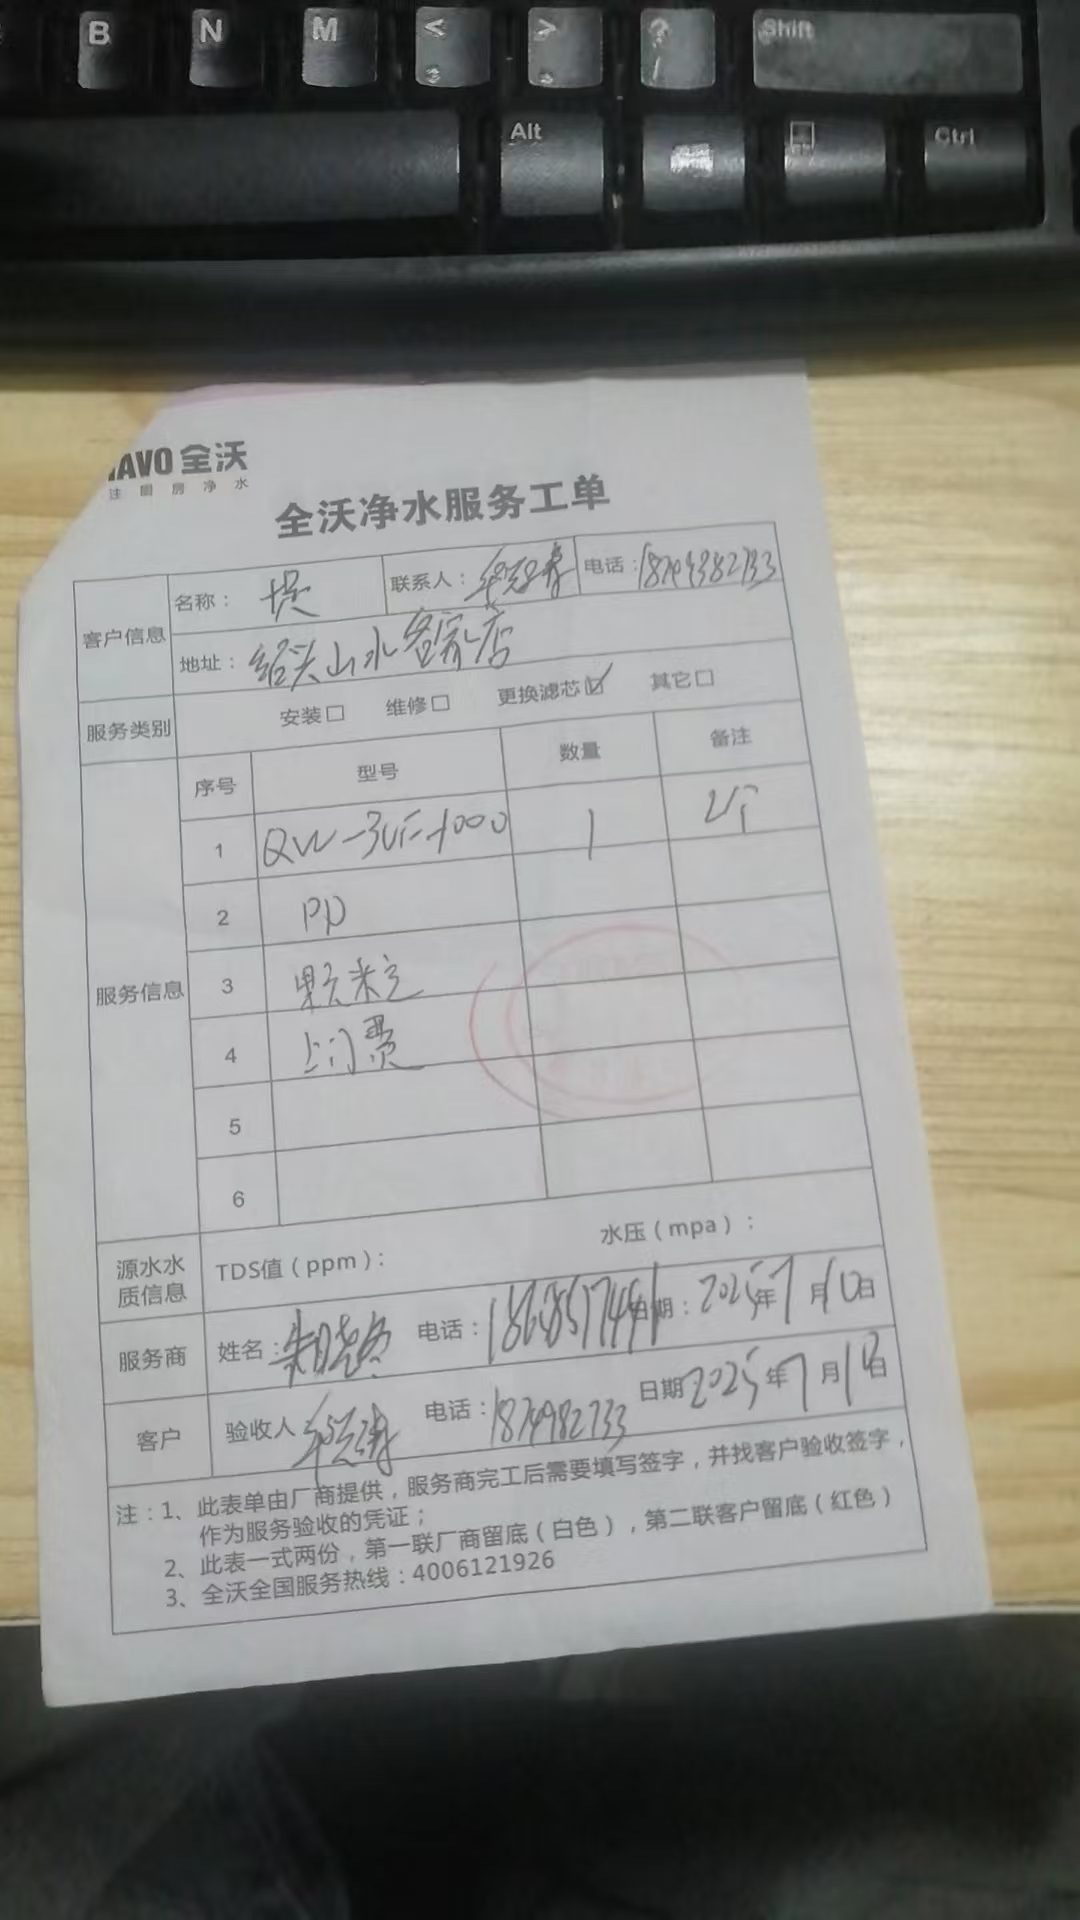 B N M < , > . ? / Shift
Alt Ctrl
AVO 全沃
注 厨 房 净 水
全沃净水服务工单
客户信息 名称： 联系人： 电话：
地址： 山水客家店
服务类别 安装□ 维修□ 更换滤芯☑ 其它□
服务信息 序号 型号 数量 备注
1 QW-3UF-1000 1
2 PP
3 颗粒
4 上门费
5
6
源水水质信息 TDS值（ppm）： 水压（mpa）：
服务商 姓名： 电话： 日期：2025年7月10日
客户 验收人 电话： 日期2025年7月10日
注：1、此表单由厂商提供，服务商完工后需要填写签字，并找客户验收签字，
作为服务验收的凭证；
2、此表一式两份，第一联厂商留底（白色），第二联客户留底（红色）
3、全沃全国服务热线：4006121926